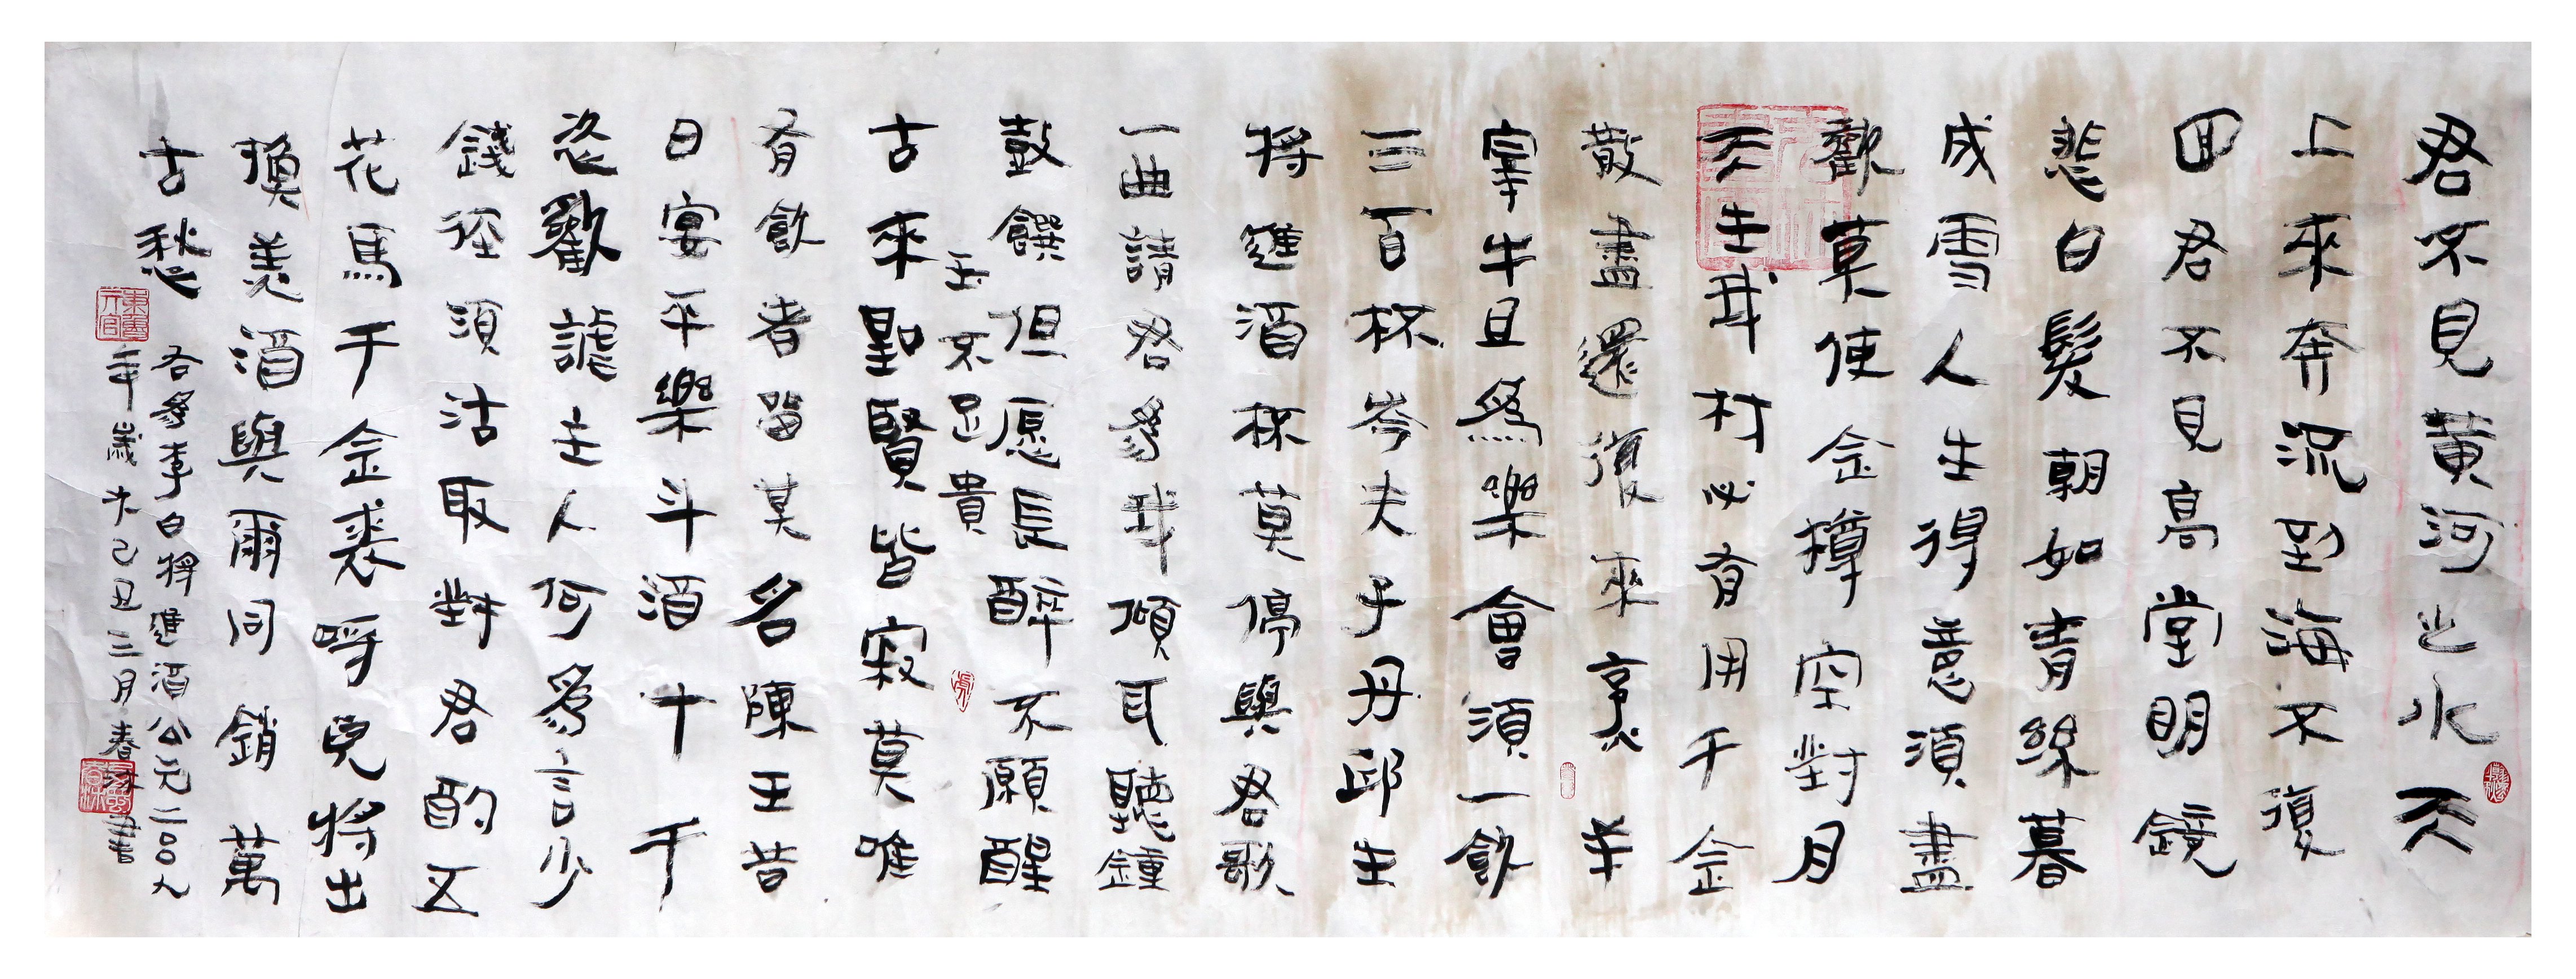 君不見黃河之水天
上來奔流到海不復
回君不見高堂明鏡
悲白髮朝如青絲暮
成雪人生得意須盡
歡莫使金樽空對月
天生我材必有用千金
散盡還復來烹羊
宰牛且為樂會須一飲
三百杯岑夫子丹邱生
將進酒杯莫停與君歌
一曲請君為我傾耳聽鐘
鼓饌但愿長醉不願醒
玉不足貴
古來聖賢皆寂莫唯
有飲者留其名陳王昔
日宴平樂斗酒十千
恣歡謔主人何為言少
錢徑須沽取對君酌五
花馬千金裘呼兒將出
換美酒與爾同銷萬
古愁
右為李白將進酒公元二〇〇九
年歲次己丑三月春林書